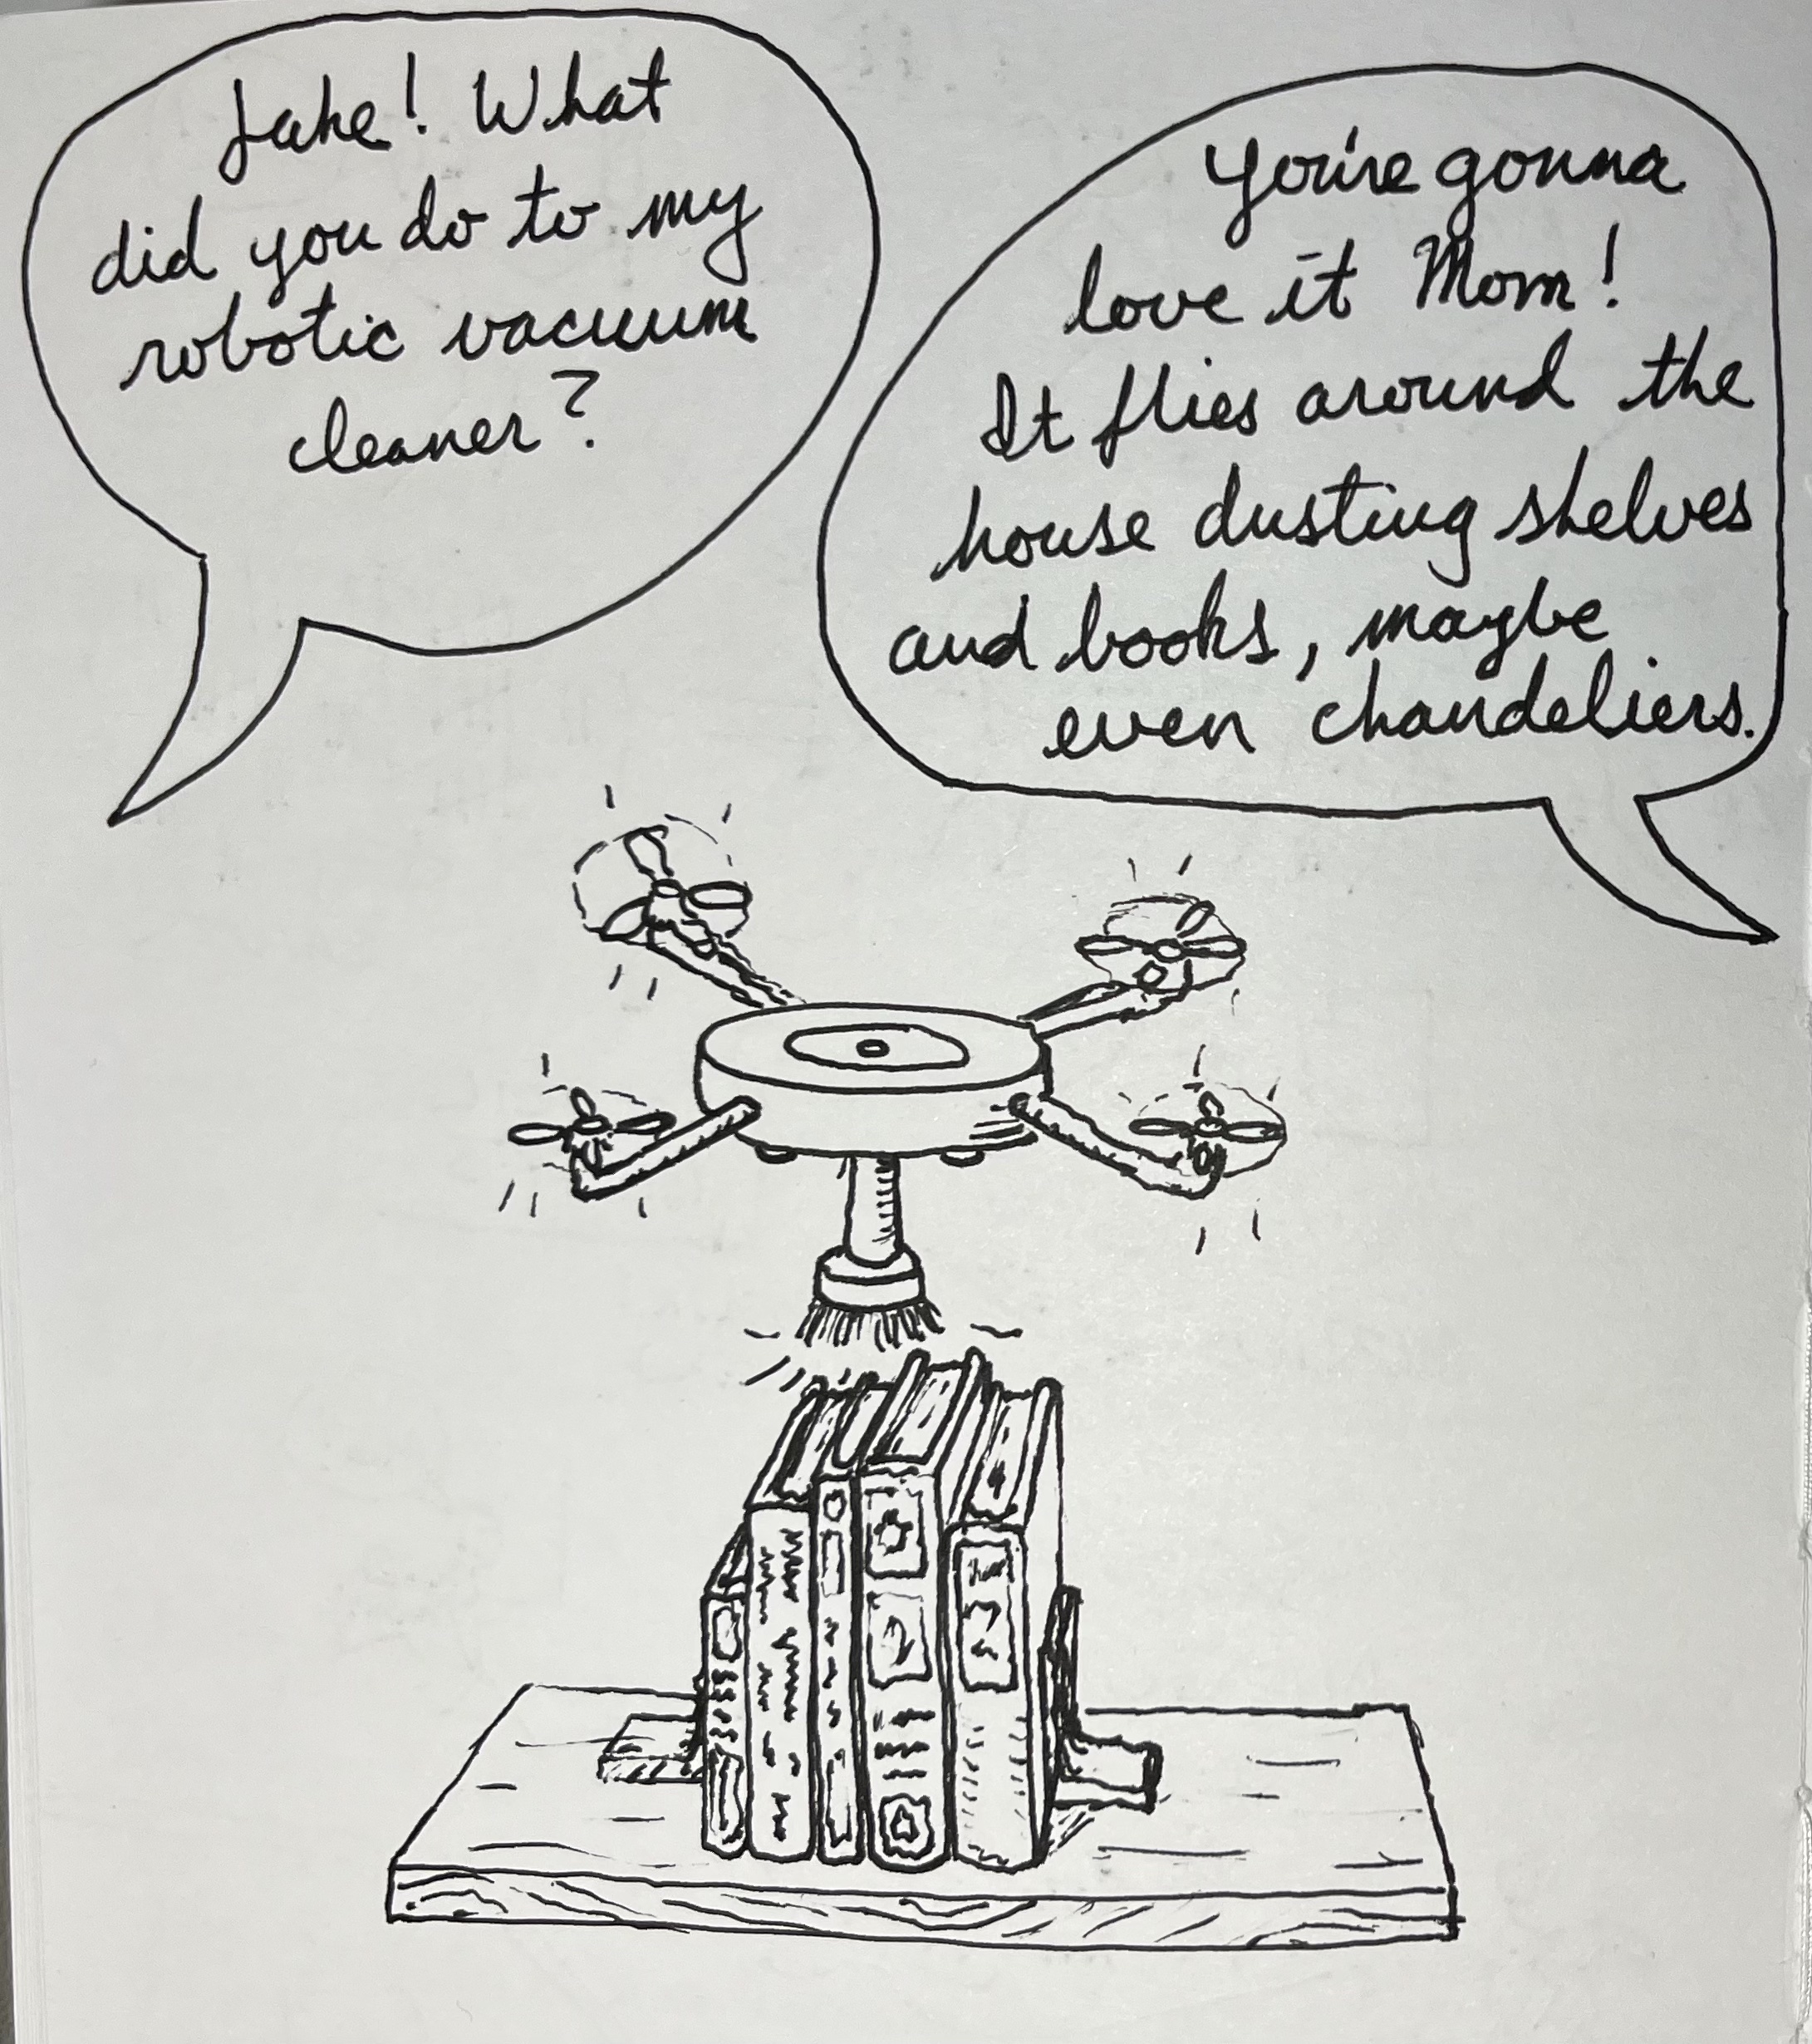 Jake! What
did you do to my
robotic vacuum
cleaner?
You're gonna
love it Mom!
It flies around the
house dusting shelves
and books, maybe
even chandeliers.